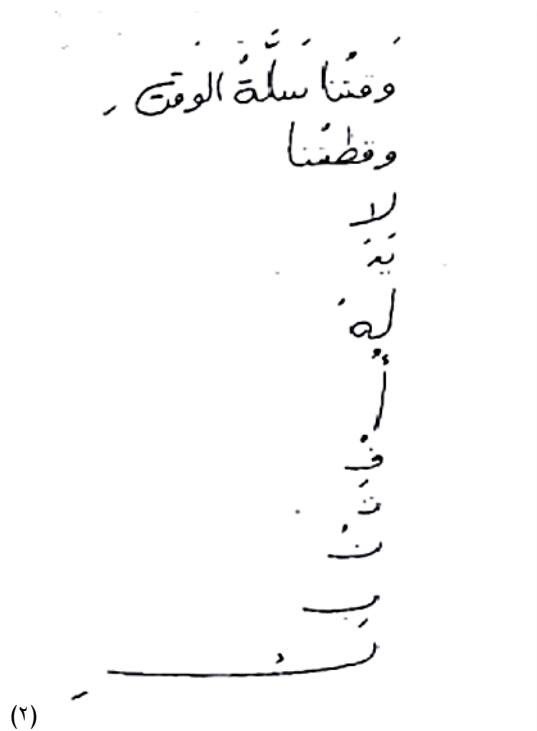 وَقتُنا سَلَّةُ الوَقتِ
وقطتُنا
لا
يَدَ
لهُ
أُ
فْ
تِ
نُ
بِ
(٢)